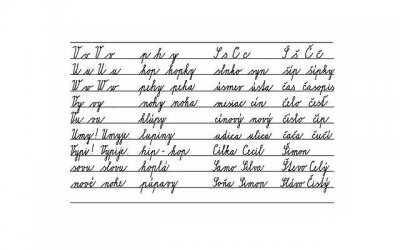 V v V v p h y S s C c Š š Č č
U u U u hop hopky slnko syn šíp šípky
W w W w pchy pcha úsmev ústa čas časopis
Vy vy nohy noha mesiac cín čelo česť
Vu vu hlúpy cínový nový číslo číp
Umy! Umyje. lupiny udica ulica čača čučí
Vypi! Vypije. hip-hop Cilka Cecil Šimon
sovu slovu hoplá Samo Silva Števo Celý
nové nohe púpavy Soňa Simon Slávo Čistý